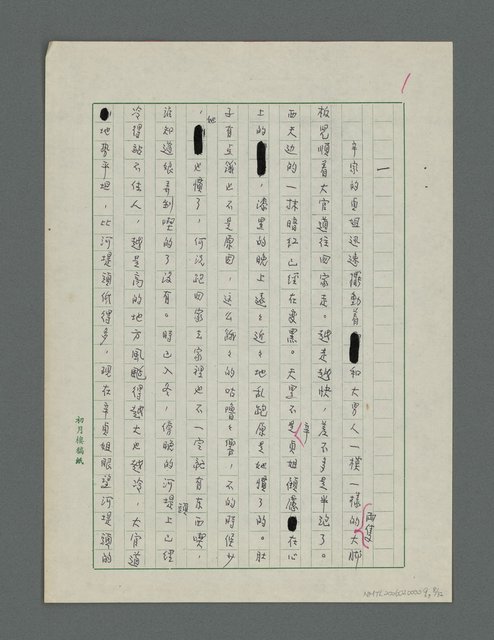 1
一
辛家的貞姐迅速擺動着和大男人一模一樣的兩隻大腳
板兒順着大官道往回家走。越走越快,差不多是半跑了。
西天边的一抹暗红已經在变黑。天黑不是辛貞姐傾慮在心
上的,漆黑的晚上遠々近々地乱跑原是她慣了的。肚
子有点饿也不是原因,这么餓々的咕嚕々響,不的時候少
,她也慣了,何況跑回家去家裡也不一定就有东西喫,
谁知道娘弄到喫的了沒有。時已入冬,傍晚的河堤頭上已經
冷得站不住人,越是高的地方風颳得越大也越冷,大官道
地勢平坦,比河堤頭低得多,現在辛貞姐眼望河堤頭的
初月樓稿紙